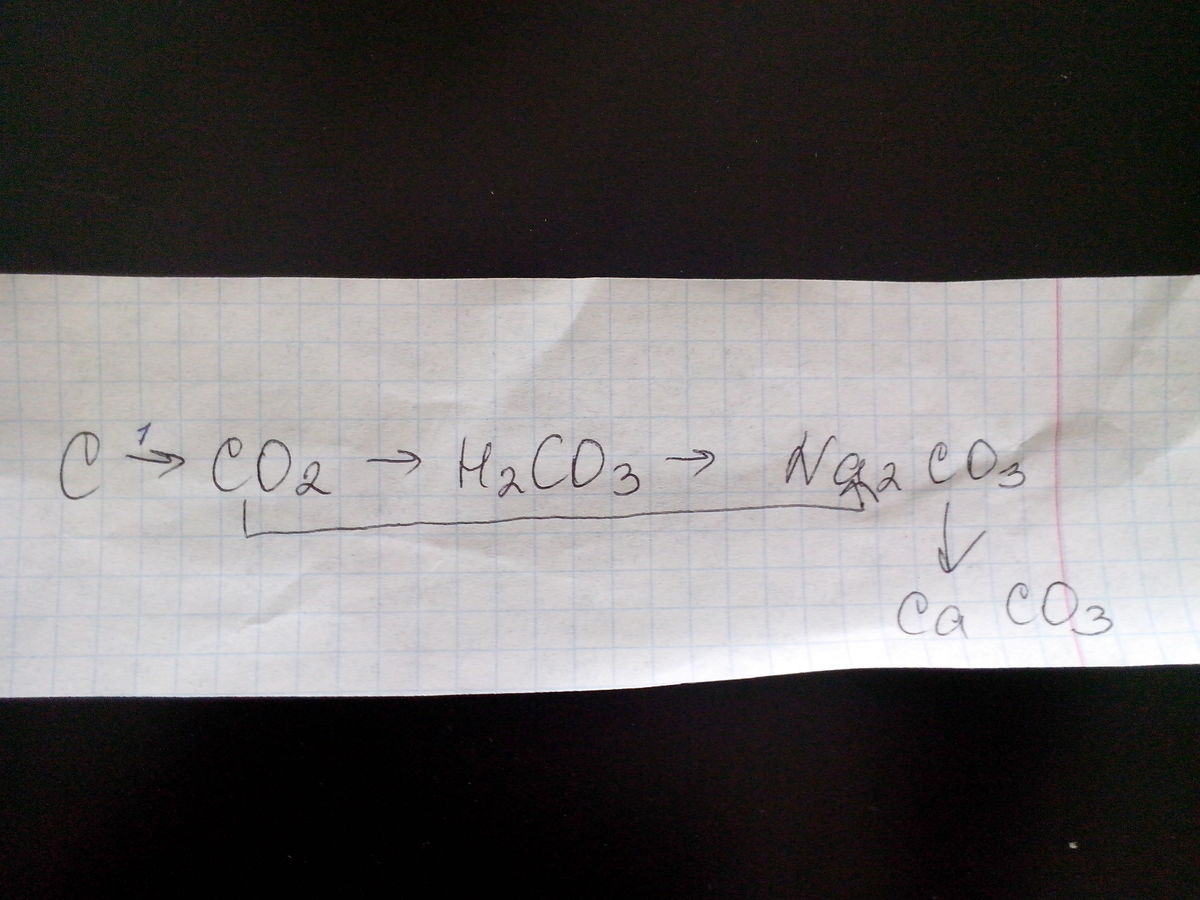 1
C → CO₂ → H₂CO₃ → Na₂CO₃
↓
CaCO₃